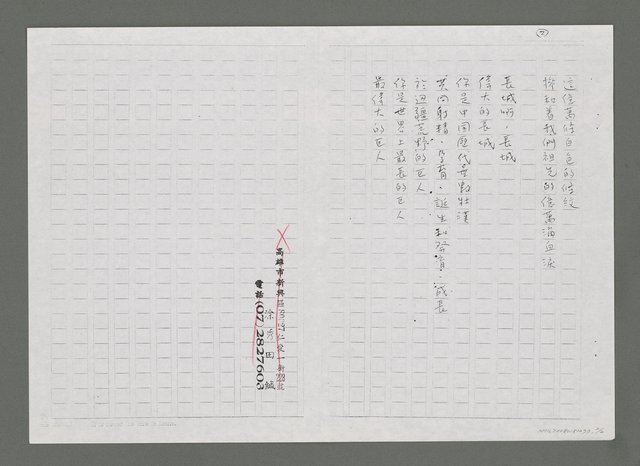 7
這億萬條白色的條紋
摻和着我們祖先的億萬滴血淚
長城啊,長城
偉大的長城
你是中国歷代無數壯漢
共同射精、孕育、誕生和發育、成長
於边疆荒野的巨人
你是世界上最長的巨人
最偉大的巨人
高雄市新興區 仁 一街
徐 田 緘
電話(07)2827603